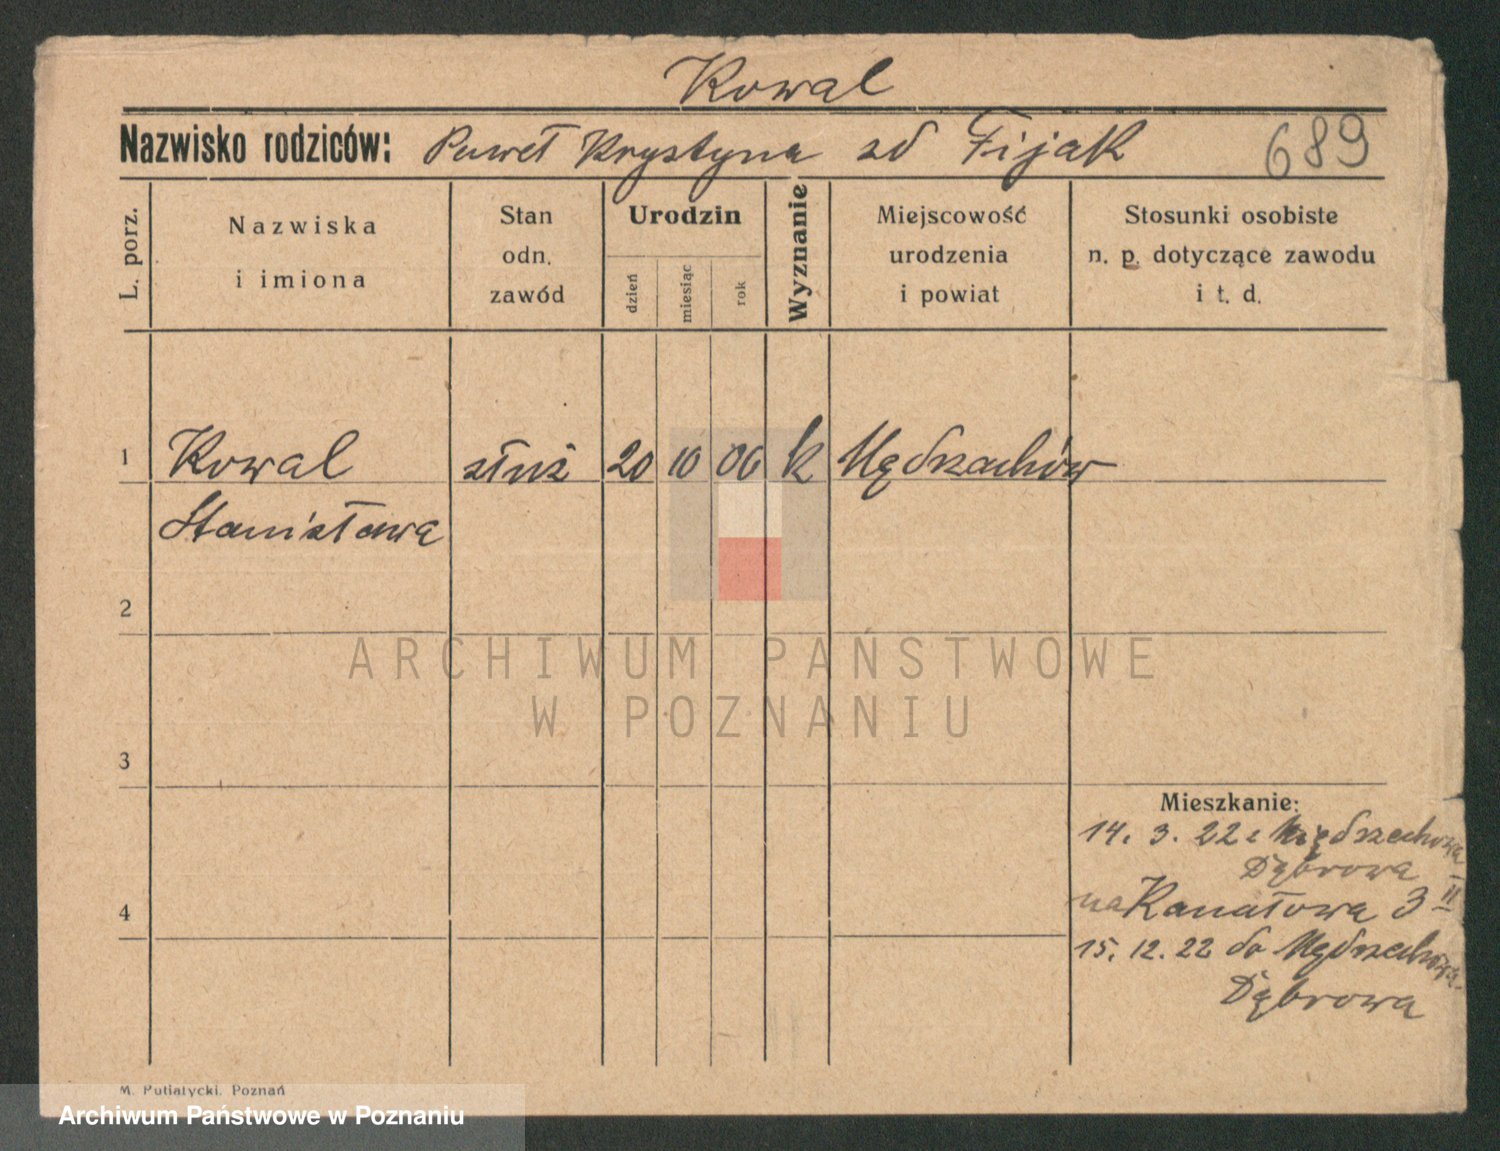 Kowal
Nazwisko rodziców: Paweł Krystyna zd Fijak 689
L. porz.
Nazwiska i imiona
Stan odn. zawód
Urodzin
dzień
miesiąc
rok
Wyznanie
Miejscowość urodzenia i powiat
Stosunki osobiste n. p. dotyczące zawodu i t. d.
1 Kowal służ 20 10 06 k Mędrzechów
Stanisława
2
ARCHIWUM PAŃSTWOWE
W POZNANIU
3
Mieszkanie:
14. 3. 22 z Mędrzechowa
Dąbrowa
na Kanałowa 3 II
4
15. 12. 22 do Mędrzechowa
Dąbrowa
M. Putiatycki. Poznań
Archiwum Państwowe w Poznaniu